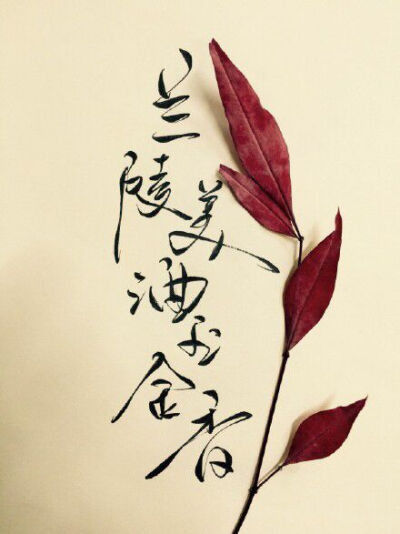 兰陵美酒郁金香